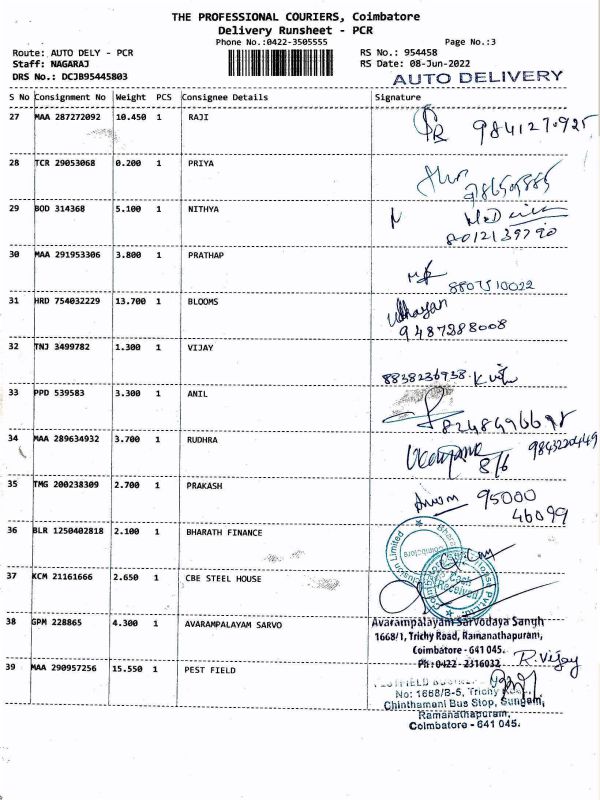 THE PROFESSIONAL COURIERS, Coimbatore
Delivery Runsheet - PCR
Phone No.:0422-3505555 Page No.:3
Route: AUTO DELY - PCR RS No.: 954458
Staff: NAGARAJ RS Date: 08-Jun-2022
DRS No.: DCJB95445803 AUTO DELIVERY
S No Consignment No Weight PCS Consignee Details Signature
27 MAA 287272092 10.450 1 RAJI
28 TCR 29053068 0.200 1 PRIYA
29 BOD 314368 5.100 1 NITHYA
8012139790
30 MAA 291953306 3.800 1 PRATHAP
8807510022
31 HRD 754032229 13.700 1 BLOOMS
Udhayan
9487288008
32 TNJ 3499782 1.300 1 VIJAY
8838236938
33 PPD 539583 3.300 1 ANIL
34 MAA 289634932 3.700 1 RUDHRA
8/6 9843220449
35 TMG 200238309 2.700 1 PRAKASH
95000
46099
36 BLR 1250402818 2.100 1 BHARATH FINANCE
37 KCM 21161666 2.650 1 CBE STEEL HOUSE
38 GPM 228865 4.300 1 AVARAMPALAYAM SARVO
Avarampalayam Sarvodaya Sangh
1668/1, Trichy Road, Ramanathapuram,
Coimbatore - 641 045.
Ph : 0422 - 2316032 R. Vijay
39 MAA 290957256 15.550 1 PEST FIELD
No: 1668/B-5, Trichy
Chinthamani Bus Stop, Sungam,
Ramanathapuram,
Coimbatore - 641 045.